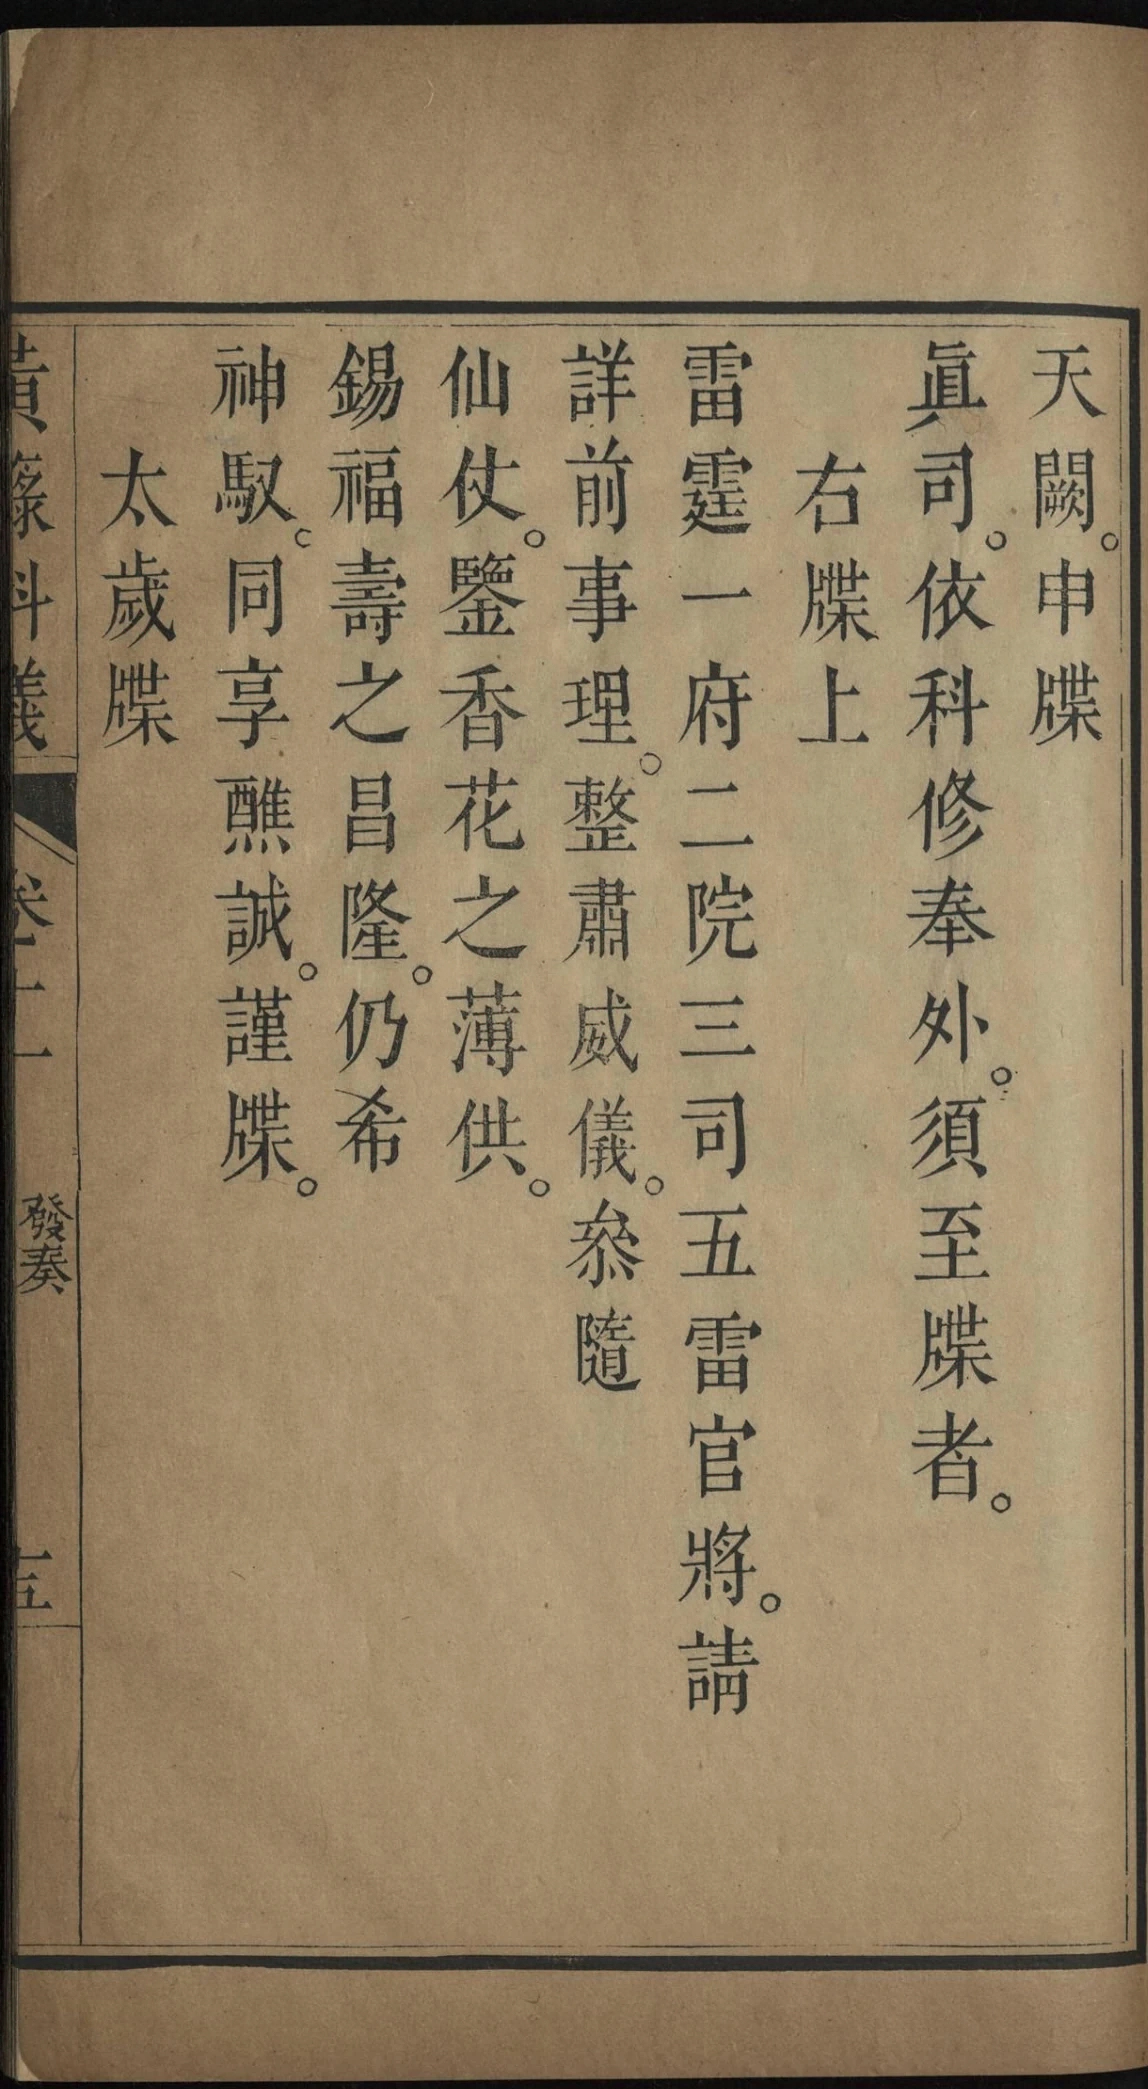 天闕。申牒
眞司。依科修奉外。須至牒者。
右牒上
雷霆一府二院三司五雷官將。請
詳前事理。整肅威儀。叅隨
仙仗。鑒香花之薄供。
錫福壽之昌隆。仍希
神馭。同享醮誠。謹牒。
太歲牒
黃籙科儀 卷十一 發奏 十五